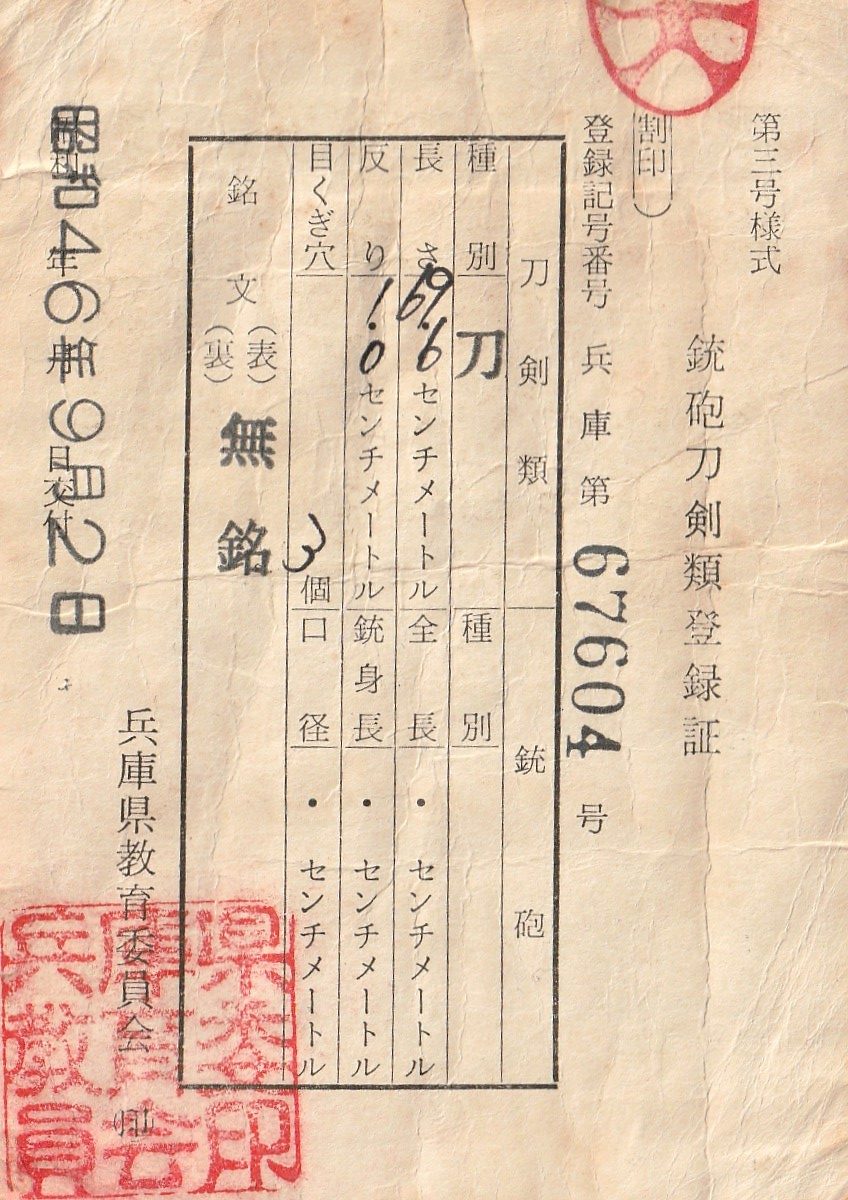 第三号様式
銃砲刀剣類登録証
(割印)
登録記号番号 兵庫第 67604 号
刀剣類 銃砲
種別 刀 種別
長さ 69.6 センチメートル 全長 ・ センチメートル
反り 1.0 センチメートル 銃身長 ・ センチメートル
目くぎ穴 3 個 口径 ・ センチメートル
銘文 (表) (裏) 無銘
昭和46年9月2日
昭和 年 月 日交付
兵庫県教育委員会 印
兵庫県
教育委
員会印